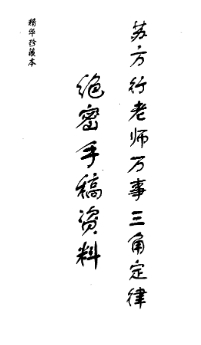 苏方行老师万事三角定律
绝密手稿资料
精华珍藏本